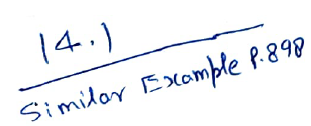 14.)
Similar Example P.898